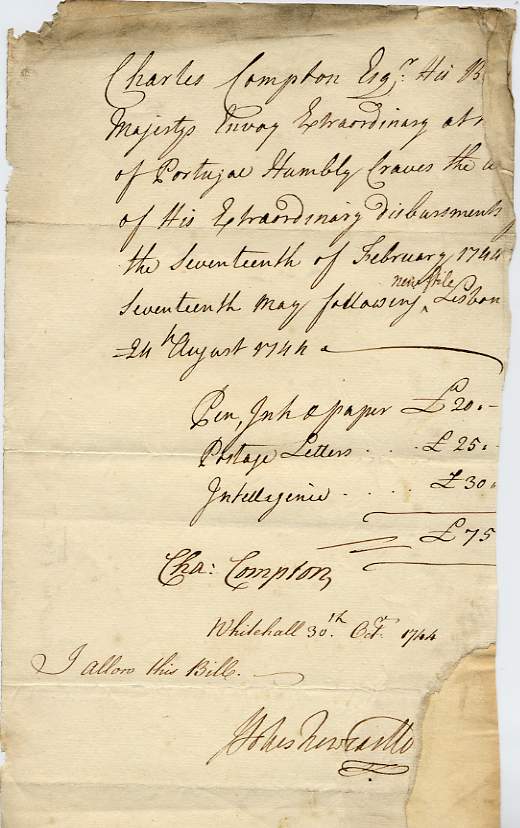 Charles Compton Esqr. His B
Majestys Envoy Extraordinary at
of Portugal Humbly Craves the
of His Extraordinary disbursments
the Seventeenth of February 1744
new stile
Seventeenth May following, Lisbon
24th August 1744
Pen, Ink & paper £20.-
Postage Letters . . . £25.-
Intellagence . . . £30.
£75
Cha: Compton
Whitehall 30th. Octr. 1744
I allow this Bill.
Holles Newcastle